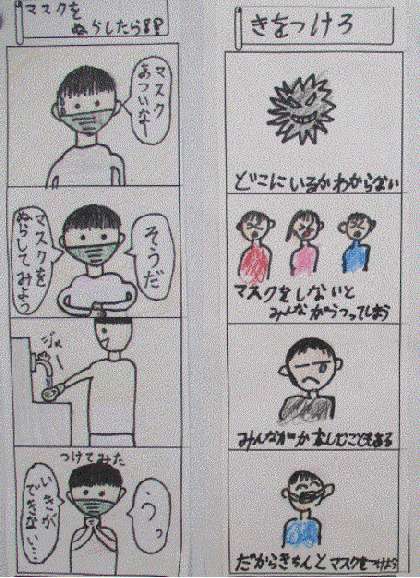 マスクを
ぬらしたら??
マスク
あついなー
そうだ
マスクを
ぬらしてみよう
ジャー
つけてみた
うっ
いきが
できない…
きをつけろ
どこにいるかわからない
マスクをしないと
みんながうつってしまう
みんながかなしむこともある
だからきちんとマスクをつけよう